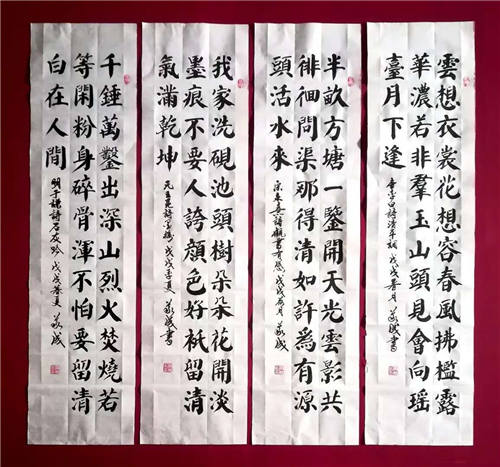 雲想衣裳花想容春風拂檻露
華濃若非羣玉山頭見會向瑤
臺月下逢
唐李白詩清平調 戊戌春月 書
半畝方塘一鑒開天光雲影共
徘徊問渠那得清如許爲有源
頭活水來
宋朱熹詩觀書有感 戊戌 月
我家洗硯池頭樹朵朵花開淡
墨痕不要人誇顏色好祇留清
氣滿乾坤
元王冕詩墨梅 戊戌季夏 書
千錘萬鑿出深山烈火焚燒若
等閑粉身碎骨渾不怕要留清
白在人間
明于謙詩石灰吟 戊戌 夏